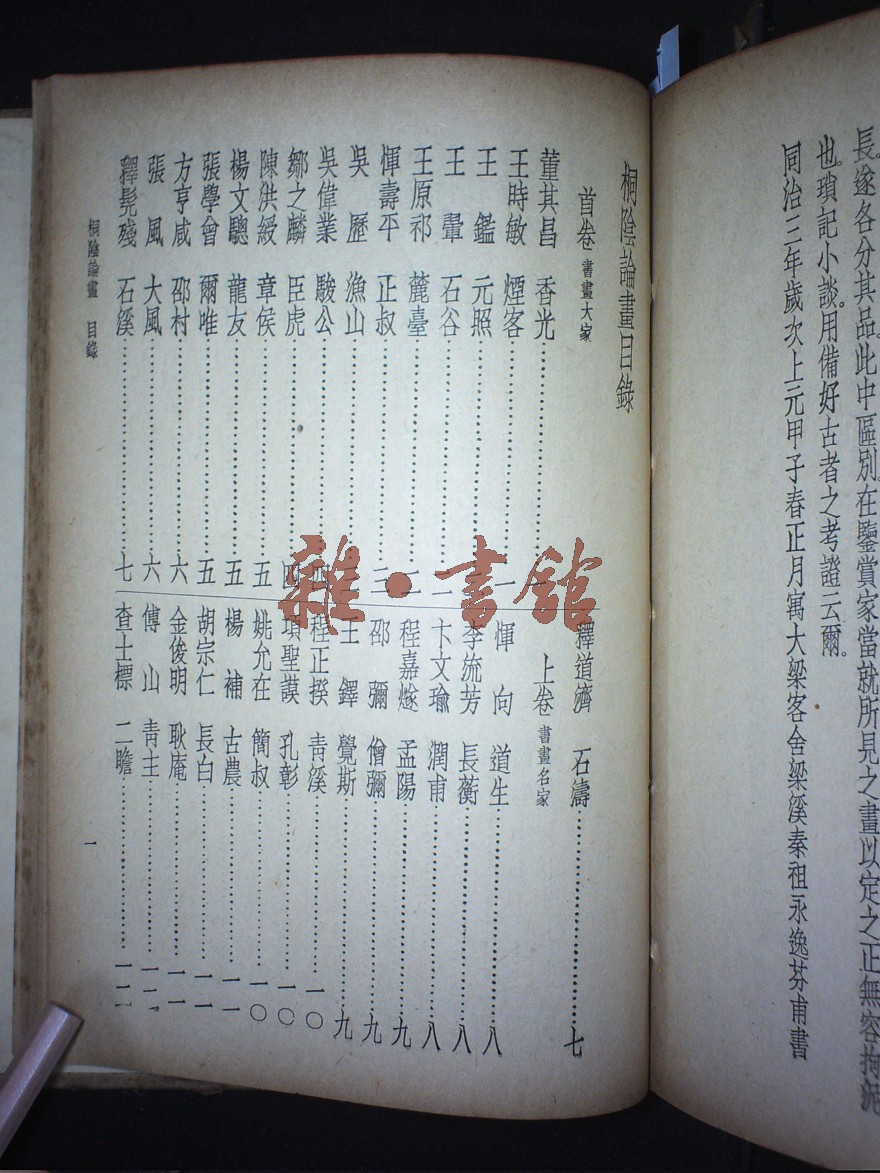 長。遂各分其品。此中區別。在鑒賞家當就所見之畫以定之。正無容拘泥
也。瑣記小談。用備好古者之考證云爾。
同治三年歲次上元甲子春正月寓大梁客舍梁溪秦祖永逸芬甫書
桐陰論畫目錄
首卷 書畫大家
董其昌 香光
王時敏 煙客 一
王鑑 元照
王翬 石谷 二
王原祁 麓臺 二
惲壽平 正叔 三
吳歷 漁山
吳偉業 駿公 四
鄒之麟 臣虎 四
陳洪綬 章侯 五
楊文驄 龍友 五
張學曾 爾唯 五
方亨咸 邵村 六
張風 大風 六
釋髡殘 石溪 七
釋道濟 石濤 七
上卷 書畫名家
惲向 道生 八
李流芳 長蘅 八
卞文瑜 潤甫 八
程嘉燧 孟陽 九
邵彌 僧彌 九
王鐸 覺斯 九
程正揆 青溪 一〇
項聖謨 孔彰 一〇
姚允在 簡叔 一〇
楊補 古農 一一
胡宗仁 長白 一一
金俊明 耿庵 一一
傅山 青主 一二
查士標 二瞻 一二
桐陰論畫 目錄
一
雜·書館